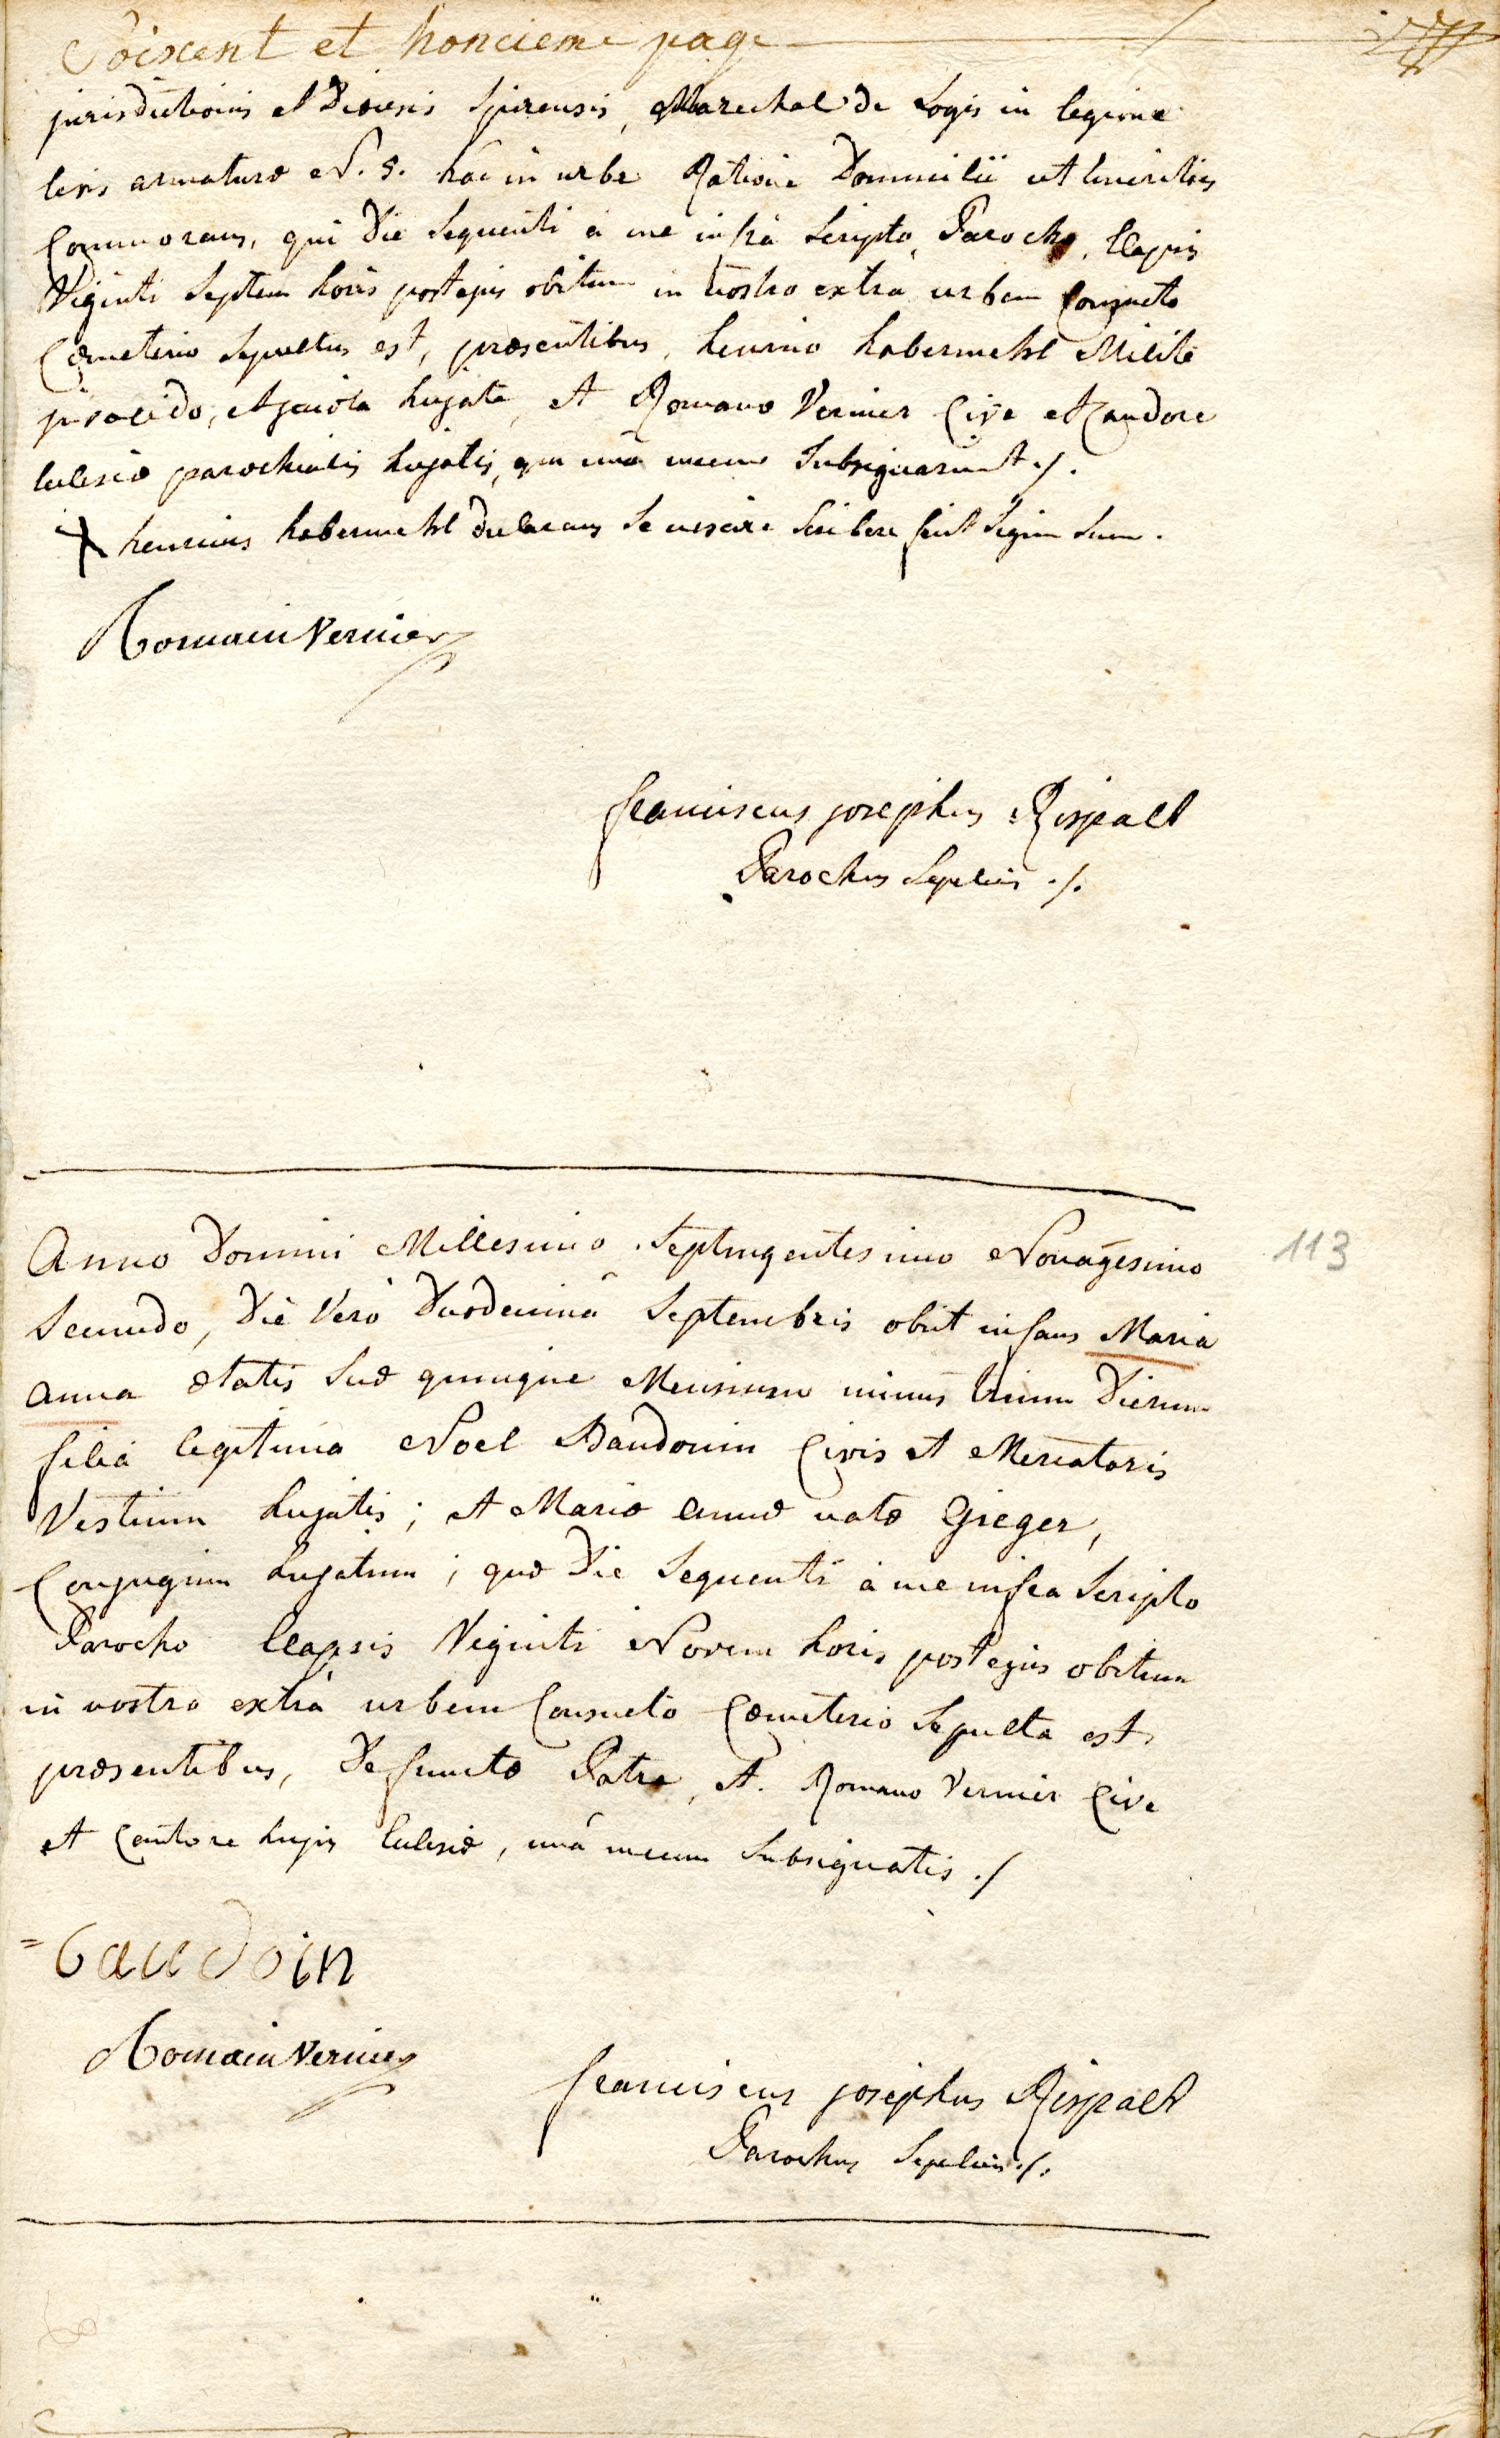 Soixent et honcieme page
jurisdictionis et Dioecesis Spirensis, Marechal de Logis in legione
levis armaturæ N. 8. hac in urbe Ratione Domicilii et
Commorans, qui Die Sequenti a me infrà Scripto Parocho, Elapsis
Viginti Septem horis post ejus obitum in nostro extra urbem Consueto
Cœmeterio Sepultus est, præsentibus, henrico habermehl Milite
et hujate, et Romano Vernier Cive et Cantore
Eclesiæ parochialis hujatis, qui unà mecum Subsignarunt ./.
henricus habermehl declarans Se nescire Scribere fecit Signum Suum.
Romain Vernier
franciscus josephus Rispalt
Parochus Sepeliens ./.
Anno Domini Millesimo Septingentesimo Nonagesimo
113
Secundo, Die Verò Duodecimâ Septembris obiit infans Maria
anna ætatis Suæ quinque Mensium minus trium Dierum
filia legitima Noel Baudouin Civis et Mercatoris
Vestium hujatis; et Mariæ annæ natæ Grieger,
Conjugum hujatum; quæ Die Sequenti à me infra Scripto
Parocho Elapsis Viginti Novem horis post ejus obitum
in nostro extrà urbem Consueto Cœmeterio Sepulta est
præsentibus, Defunctæ Patre, et Romano Vernier Cive
et Cantore hujus Eclesiæ, unà mecum Subsignatis ./
= baudoin
Romain Vernier
franciscus josephus Rispalt
Parochus Sepeliens ./.